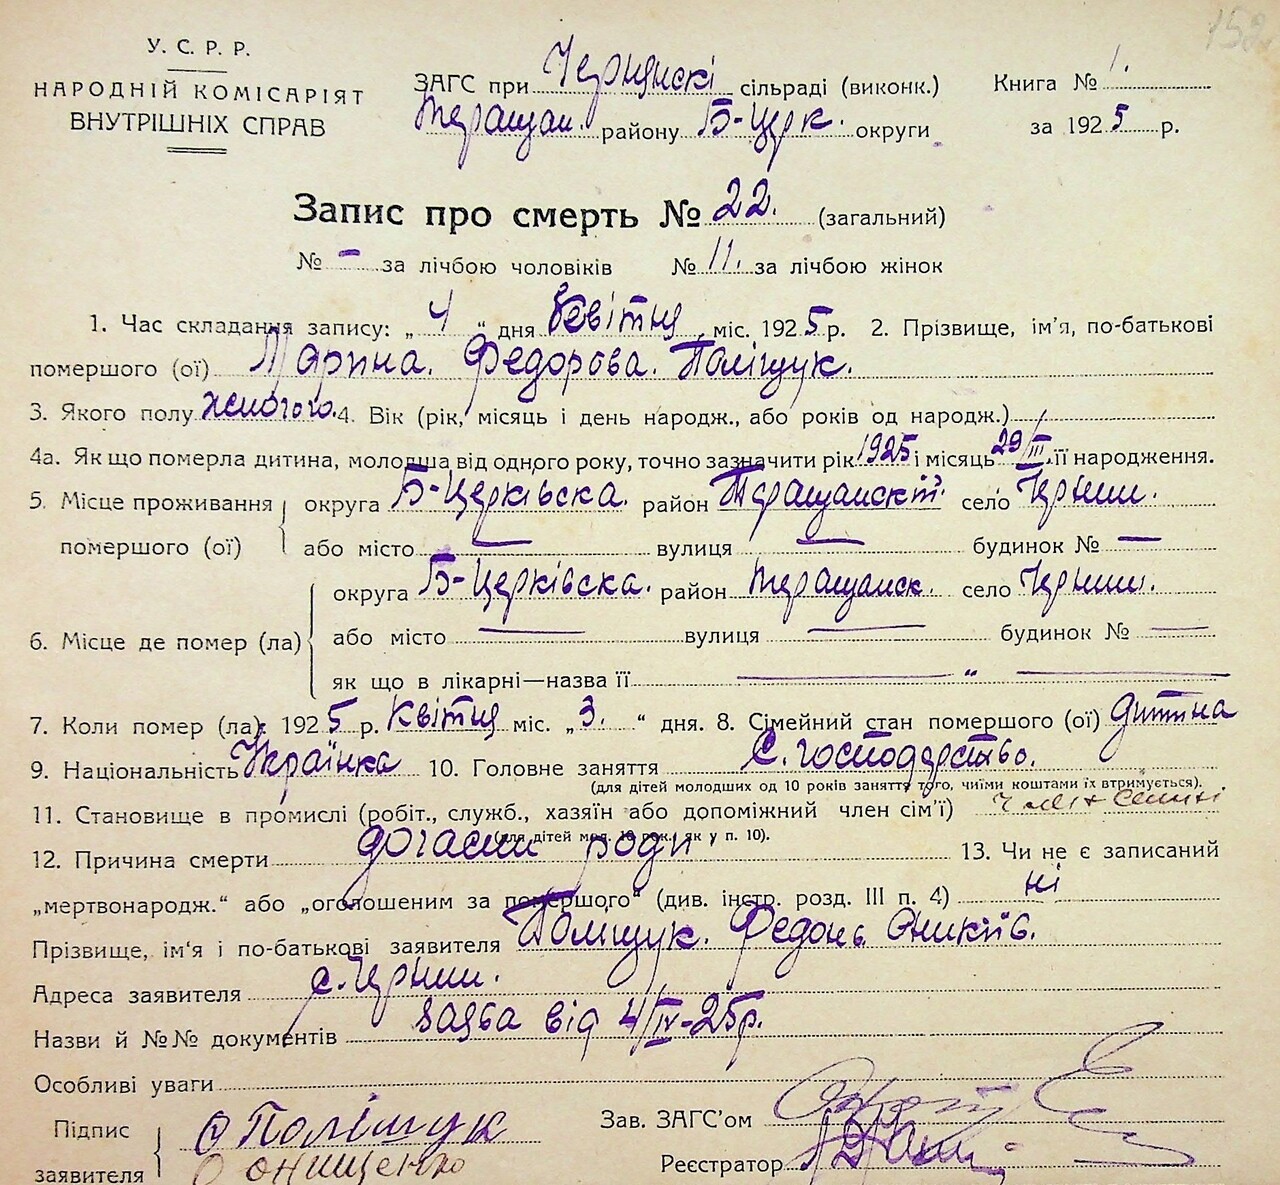 У. С. Р. Р.
НАРОДНІЙ КОМІСАРІЯТ
ВНУТРІШНІХ СПРАВ
ЗАГС при сільраді (виконк.)
Таращан. району Б-Церк. округи
Книга № 1.
за 1925 р.
Запис про смерть № 22. (загальний)
№ - за лічбою чоловіків № 11. за лічбою жінок
1. Час складання запису: „ 4 “ дня Квітня міс. 1925 р. 2. Прізвище, ім’я, по-батькові
помершого (ої) Марина. Федорова. Поліщук.
3. Якого полу жіночого. 4. Вік (рік, місяць і день народж., або років од народж.)
4а. Як що померла дитина, молодша від одного року, точно зазначити рік 1925 і місяць 29/III її народження.
5. Місце проживання округа Б-Церківська. район Таращанскій. село
помершого (ої) або місто — вулиця — будинок № —
округа Б-Церківска. район Таращанск. село
6. Місце де помер (ла) або місто — вулиця — будинок № —
як що в лікарні—назва її — „ —
7. Коли помер (ла): 1925 р. Квітня міс. „ 3. “ дня. 8. Сімейний стан помершого (ої) дитина
9. Національність Українка 10. Головне заняття С. господарство.
(для дітей молодших од 10 років заняття того, чиїми коштами їх втримується).
11. Становище в промислі (робіт., служб., хазяїн або допоміжний член сім’ї)
(для дітей мол. 10 рок., як у п. 10).
12. Причина смерти роди 13. Чи не є записаний
„мертвонародж.“ або „оголошеним за помершого“ (див. інстр. розд. III п. 4) ні
Прізвище, ім‘я і по-батькові заявителя Поліщук. Федонь Оникіїв.
Адреса заявителя
Назви й №№ документів заява від 4/IV-25р.
Особливі уваги
Підпис О Поліщук
заявителя О Онищенко
Зав. ЗАГС’ом
Реєстратор